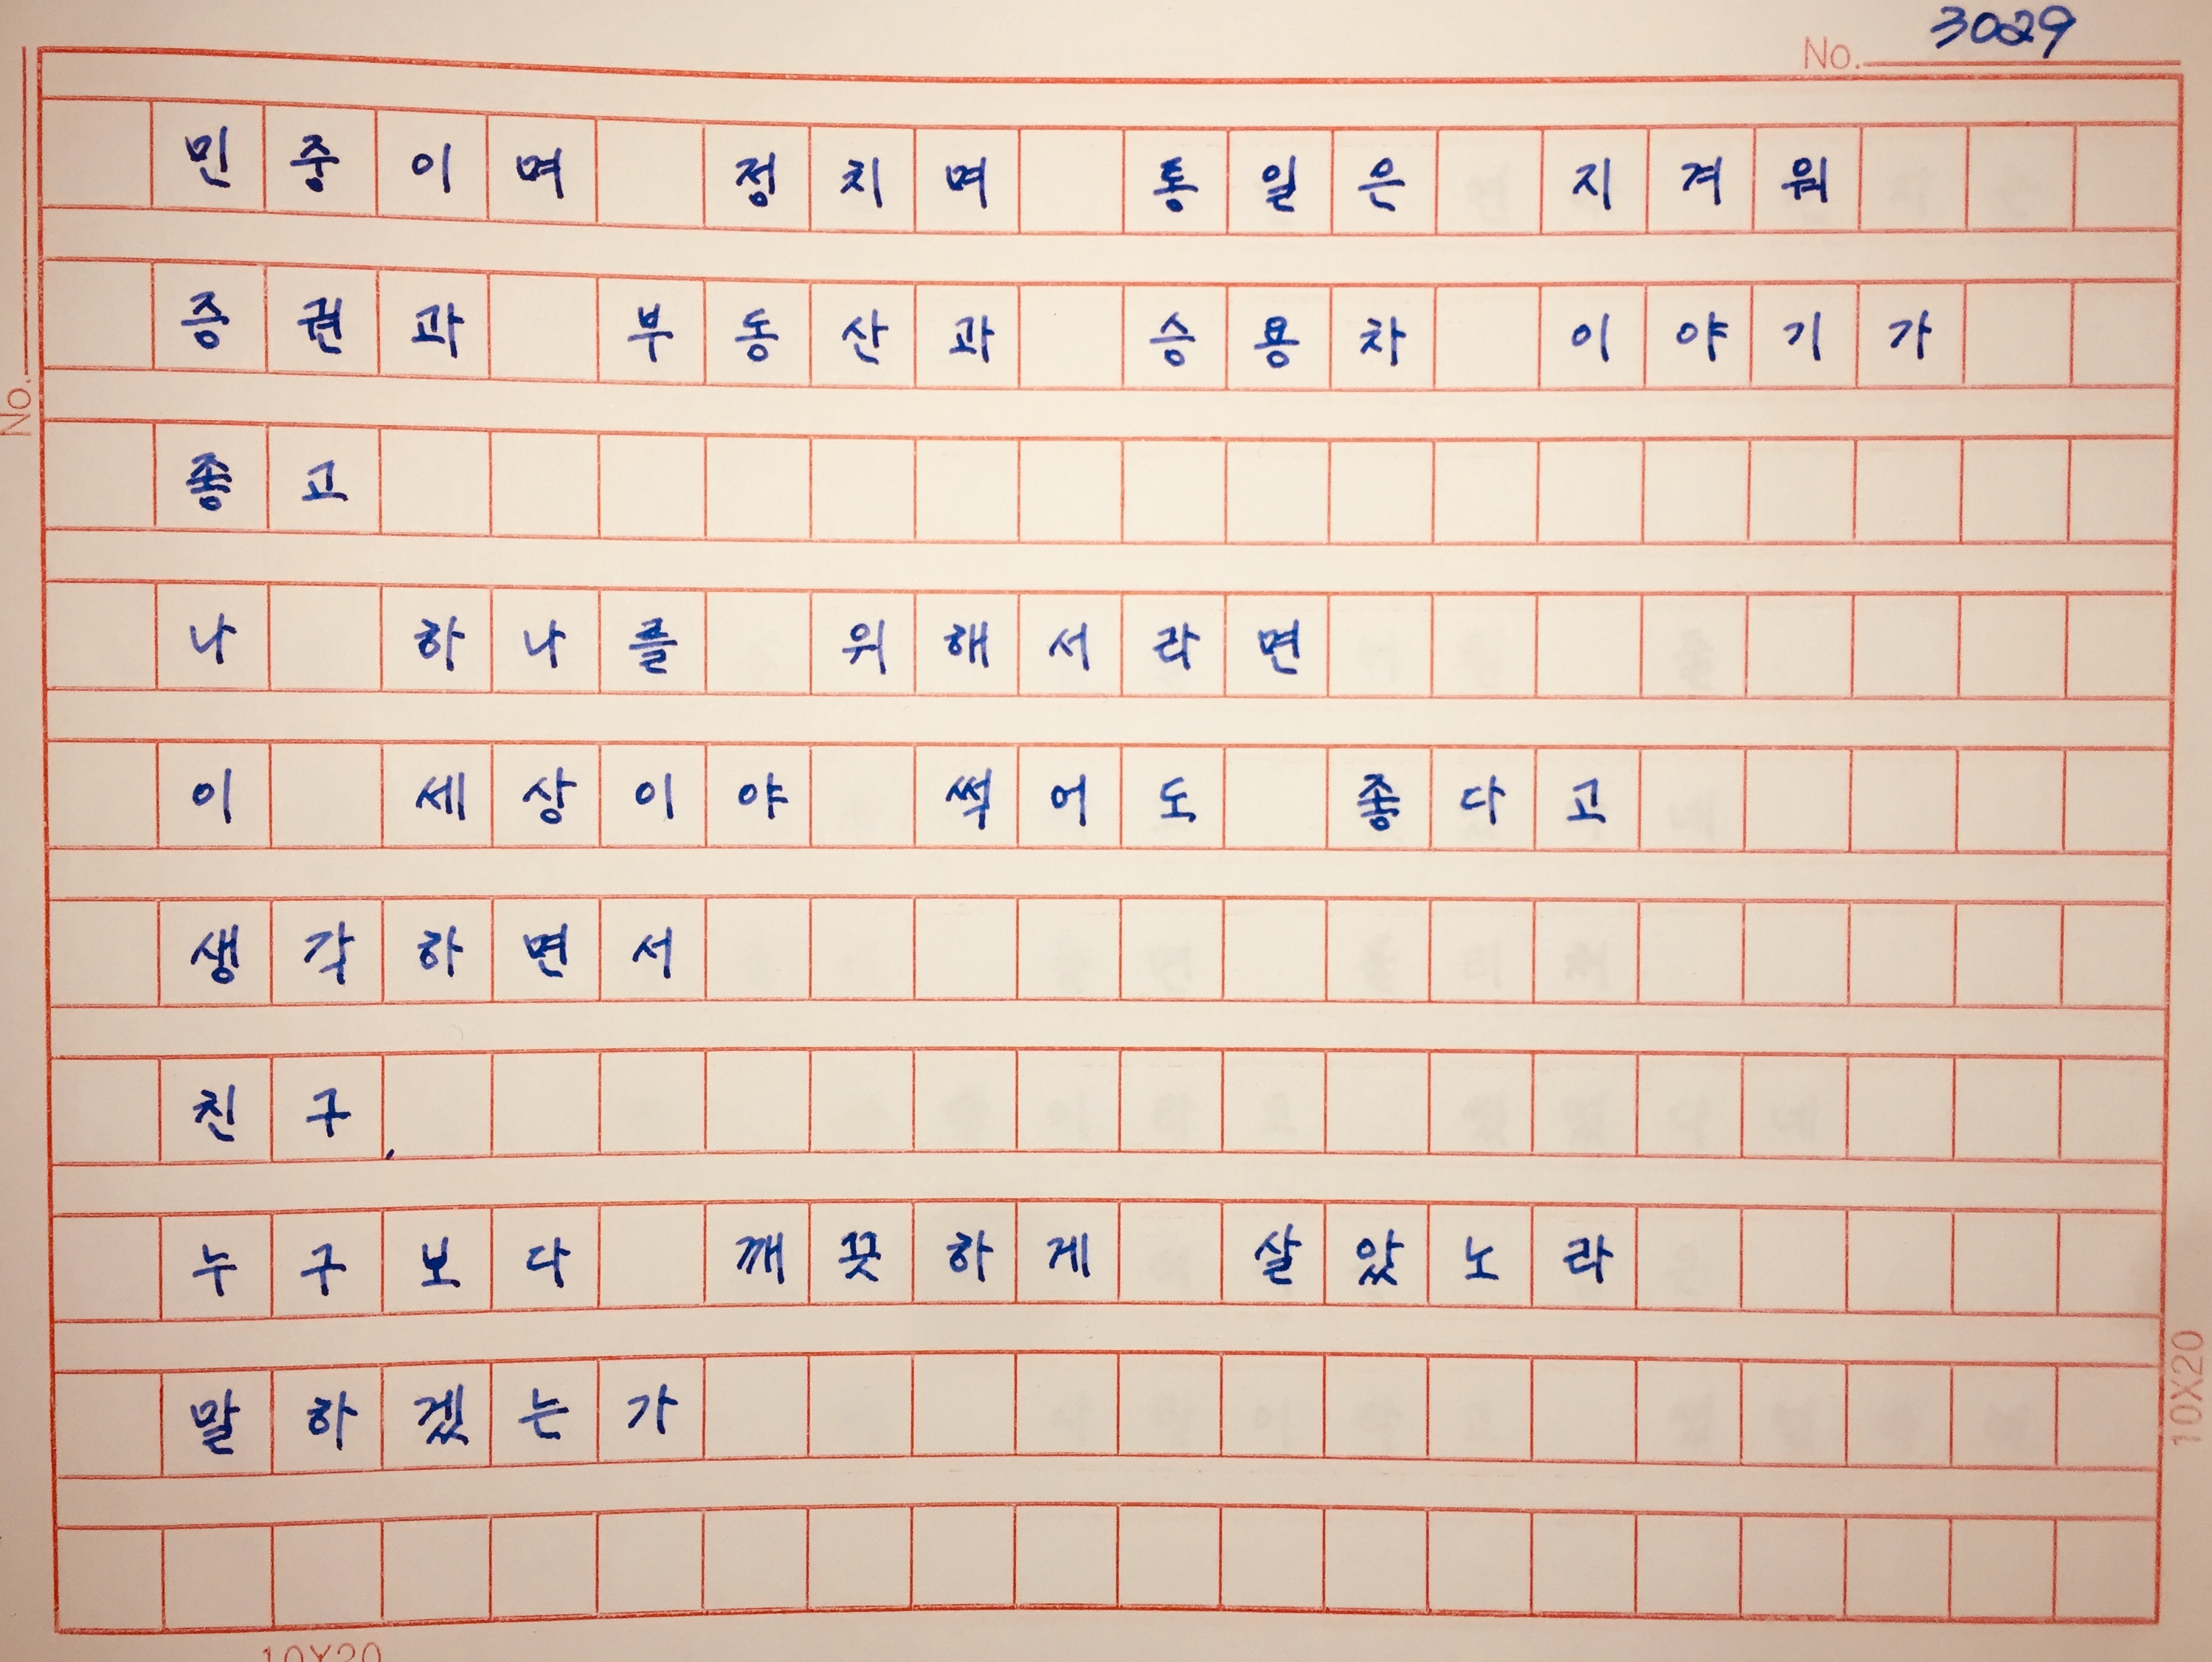 No. 3029
민중이며 정치며 통일은 지겨워
증권과 부동산과 승용차 이야기가
좋고
나 하나를 위해서라면
이 세상이야 썩어도 좋다고
생각하면서
친구,
누구보다 깨끗하게 살았노라
말하겠는가
No.
10X20
10X20